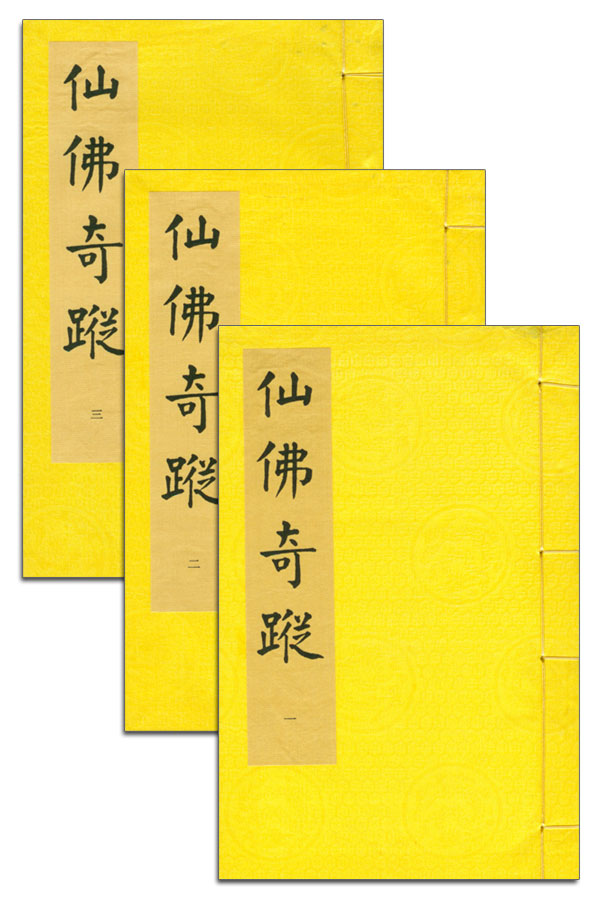 仙佛奇蹤
三
仙佛奇蹤
二
仙佛奇蹤
一